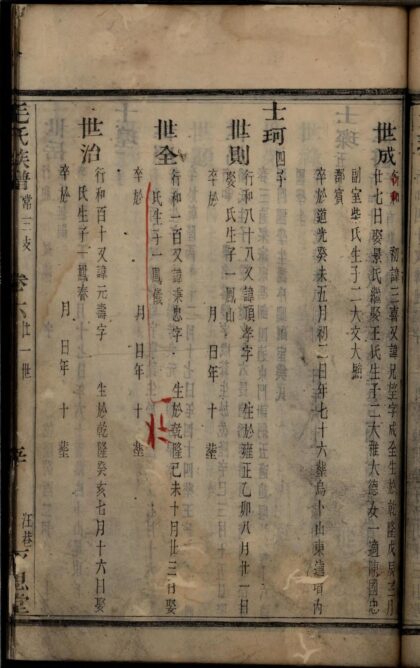 世成
行和 初諱三喜又諱 望字成 生於乾隆戊辰三月
廿七日娶景氏繼娶王氏生子二大雅大德女一適陳國忠
副室柴氏生子二大文大
卒於道光癸未五月初二日年七十六葬烏卜山東 墳內
士珂 四子
世則
行和八十八又諱 孝字 生於雍正乙卯八月廿一日
娶 氏生子一鳳山
卒於 月 日年 十 葬
世全
行和一百又諱秉忠字 生於乾隆己未十月廿三日娶
氏生子一鳳儀
卒於 月 日年 十 葬
世治
行和百十又諱元壽字 生於乾隆癸亥七月十六日娶
氏生子一鳳春
卒於 月 日年 十 葬
毛氏族譜 常三支 卷六 廿一世 汪巷 思堂